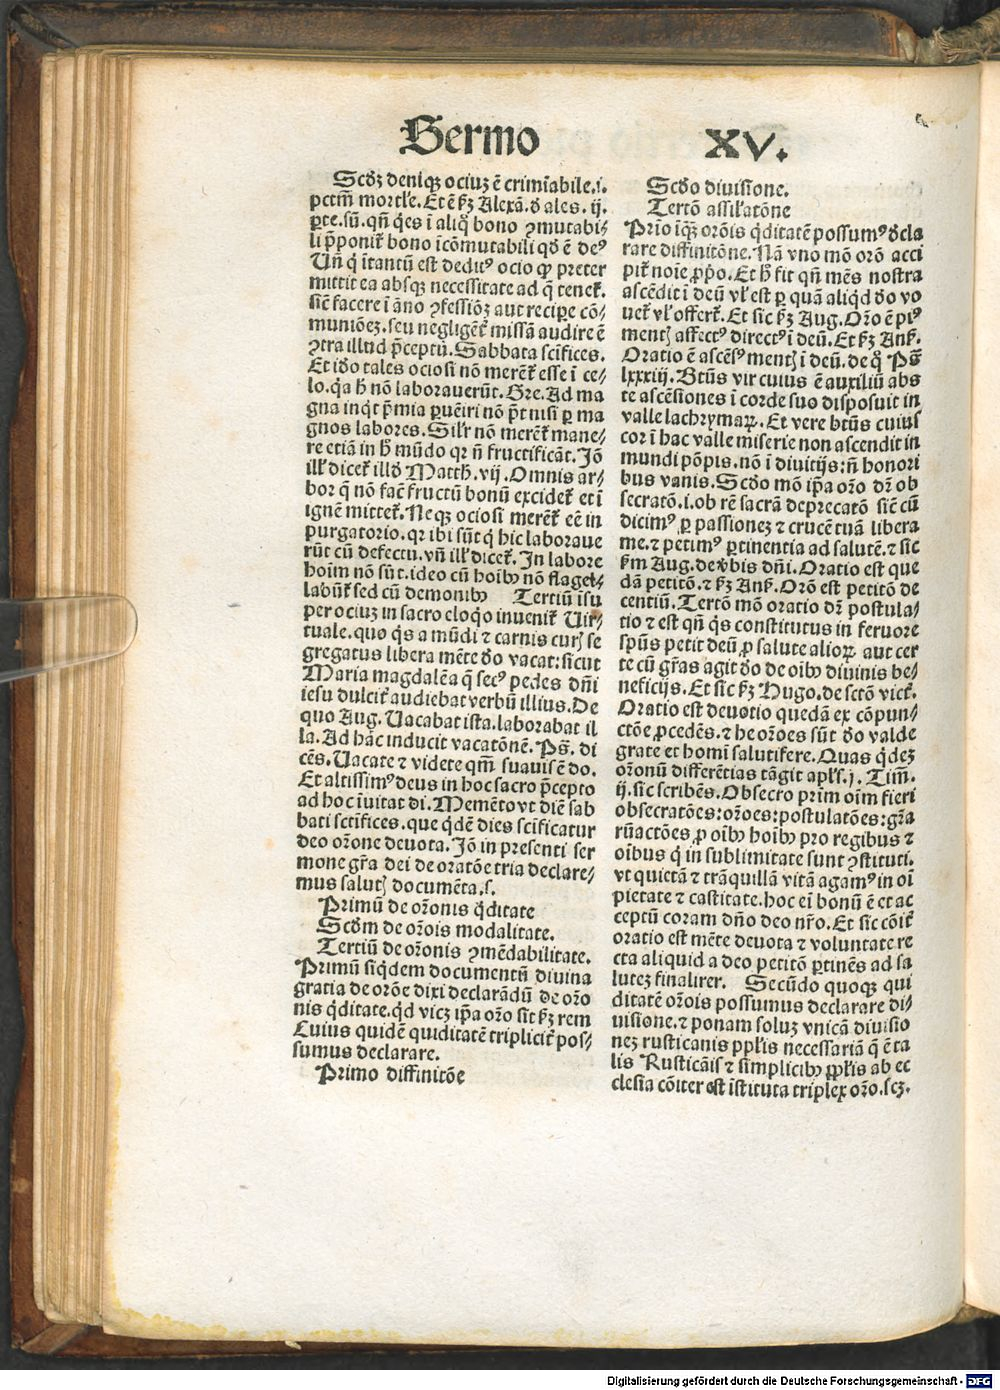 Sermo XV.
Scd'ꝫ deniqꝫ ociuꝫ ē crimīabile.i.
pctm̄ mortl'e. Et ē ẜꝫ Alexā. d' ales. ij.
ꝑte. sū. qn̄ q̇es ī aliq̊ bono ꝯmutabi⸗
li p̄ponit̉ bono īcōmutabili qd' ē deꝰ
Un̄ q̇ ītantū est deditꝰ ocio ꝙ preter
mittit ea absqꝫ necessitate ad q̄ tenet̉.
sic̄ facere ī āno ꝯfessiōꝫ aut recipe cō⸗
muniōeꝫ. seu negligēt̉ missā audire ē
ꝯtra illud p̄ceptū. Sabbata scīfices.
Et id'o tales ociosi nō merēt̉ esse ī ce⸗
lo. q̇a h̄ nō laborauerūt. Gre. Ad ma
gna inq̇t p̄mia ꝑuēiri nō p̄t nisi ꝑ ma
gnos labores. Sil'r nō merēt̉ mane⸗
re etiā in h̄ mūdo qr n̄ fructificāt. Jō
ill' dicet̉ illd' Matth. vij. Omnis ar⸗
bor q̄ nō fac̄ fructū bonū excidet̉ et ī
ignē mittet̉. Neqꝫ ociosi merēt̉ eē in
purgatorio. qr ibi sūt q̇ hic laboraue
rūt cū defectu. vn̄ ill' dicet̉. In labore
hoīm nō sūt. ideo cū hoībꝰ nō flagel⸗
labūt̉ sed cū demonibꝰ Tertiū isu
per ociuꝫ in sacro eloq̇o inuenit̉ Uir⸗
tuale. quo q̇s a mūdi ⁊ carnis curꝭ se
gregatus libera mēte d'o vacat: sicut
Maria magdalēa q̄ secꝰ pedes dn̄i
iesu dulcit̉ audiebat verbū illius. De
quo Aug. Uacabat ista. laborabat il
la. Ad hāc inducit vacatōnē. Ps̄. di
cēs. Uacate ⁊ videte qm̄ suauis ē do.
Et altissimꝰ deus in hoc sacro p̄cepto
ad hoc īuitat di. Memēto vt diē sab
bati sctīfices. que q̇dē dies scīficatur
deo orōne deuota. Jō in presenti ser
mone gr̄a dei de oratōe tria declare⸗
mus salutꝭ documēta. s.
Primū de orōnis q̇ditate
Scd'm de orōis modalitate.
Tertiū de orōnis ꝯmēdabilitate.
Primū siq̇dem documentū diuina
gratia de orōne dixi declarādū de orō
nis q̇ditate. q̇d vicꝫ ip̄a orō sit ẜꝫ rem
Cuius quidē quiditatē triplicit̉ pos⸗
sumus declarare.
Primo diffinitōe
Scd'o diuisione.
Tertō assil'atōne
Prīo īq̇ꝫ orōis q̇ditatē possumꝰ d'cla
rare diffinitōne. Nā vno mō orō acci
pit̉ noīe ꝓp̄o. Et h̄ fit qn̄ mēs nostra
ascēdit ī deū vl' est ꝑ quā aliq̇d d'o vo
uet̉ vl' offert̉. Et sic ẜꝫ Aug. Orō ē piꝰ
mentꝭ affectꝰ directꝰ ī deū. Et ẜꝫ Anẜ.
Oratio ē ascēsꝰ mentꝭ ī deū. de q̊ Ps̄
lxxxiij. Btūs vir cuius ē auxiliū abs
te ascēsiones ī corde suo disposuit in
valle lachrymaꝝ. Et vere btūs cuius
cor ī hac valle miserie non ascendit in
mundi pōpis. nō ī diuitijs: n̄ honori
bus vanis. Scd'o mō ip̄a orō dr̄ ob
secratō. i. ob rē sacrā deprecatō sic̄ cū
dicimꝰ ꝑ passioneꝫ ⁊ crucē tuā libera
me. ⁊ petimꝰ ꝑtinentia ad salutē. ⁊ sic
ẜm Aug. de v'bis dn̄i. Oratio est que
dā petitō. ⁊ ẜꝫ Anẜ. Orō est petitō de
centiū. Tertō mō oratio dr̄ postula⸗
tio ⁊ est qn̄ q̇s constitutus in feruore
spūs petit deū ꝓ salute alioꝝ aut cer
te cū gr̄as agit d'o de oībꝰ diuinis be⸗
neficijs. Et sic ẜꝫ Hugo. de sctō vict̉.
Oratio est deuotio quedā ex cōpun⸗
ctōe ꝓcedēs. ⁊ he orōes sūt d'o valde
grate et homī salutifere. Quas q̇deꝫ
orōnū differētias tāgit apl's. j. Tim̄.
ij. sic scribēs. Obsecro prīm oīm fieri
obsecratōes: orōes: postulatōes: gr̄a
rū actōes ꝓ oībꝰ hoībꝰ pro regibus ⁊
oībus q̇ in sublimitate sunt ꝯstituti.
vt quietā ⁊ trāquillā vitā agamꝰ in oī
pietate ⁊ castitate. hoc eī bonū ē et ac
ceptū coram dn̄o deo nr̄o. Et sic cōit̉
oratio est mēte deuota ⁊ voluntate re
cta aliquid a deo petitō ꝑtinēs ad sa
luteꝫ finalirer. Secūdo quoqꝫ qui
ditatē orōis possumus declarare di⸗
uisione. ⁊ ponam soluꝫ vnicā diuisio
neꝫ rusticanis ppl'is necessariā q̄ ē ta
lis Rusticāis ⁊ simplicibꝰ ꝓpl'is ab ec
clesia cōiter est īstituta triplex orō. scꝫ.
Digitalisierung gefördert durch die Deutsche Forschungsgemeinschaft - DFG